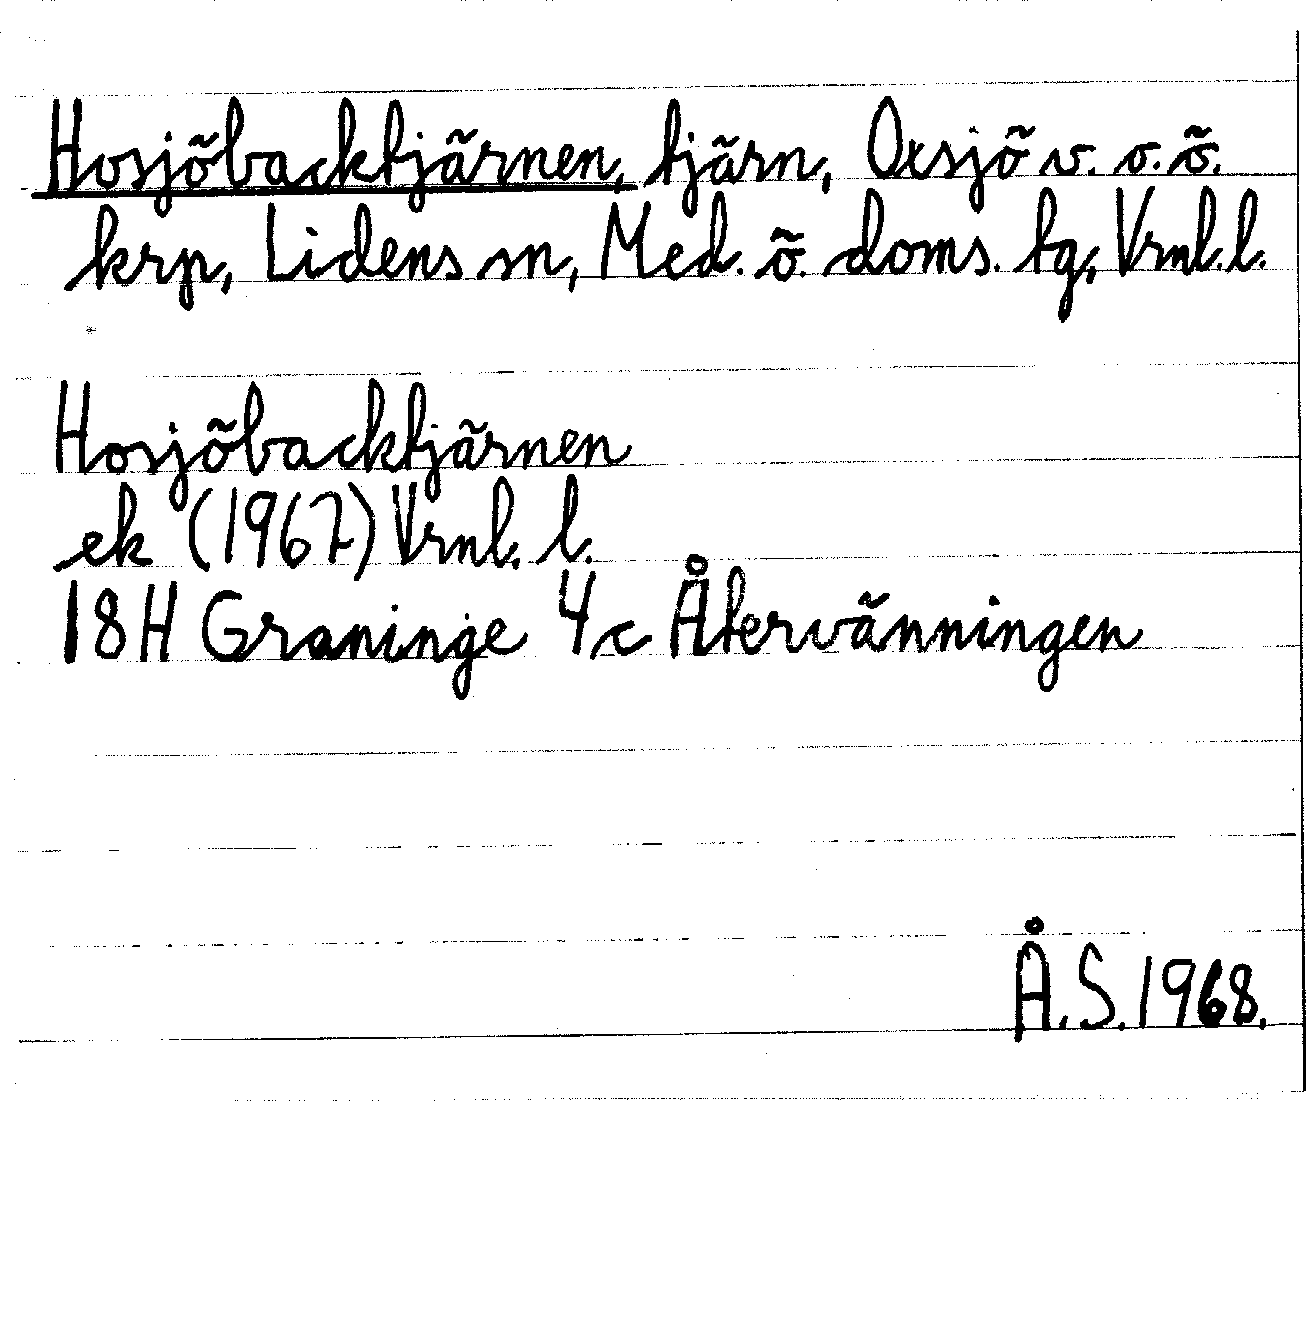 Hosjöbacktjärnen, tjärn, Oxsjö v. o. ö.
krp, Lidens sn, Med. ö. doms. tg, Vrnl. l.
Hosjöbacktjärnen
ek (1967) Vrnl. l.
18H Graninge 4c Återvänningen
Å. S. 1968.